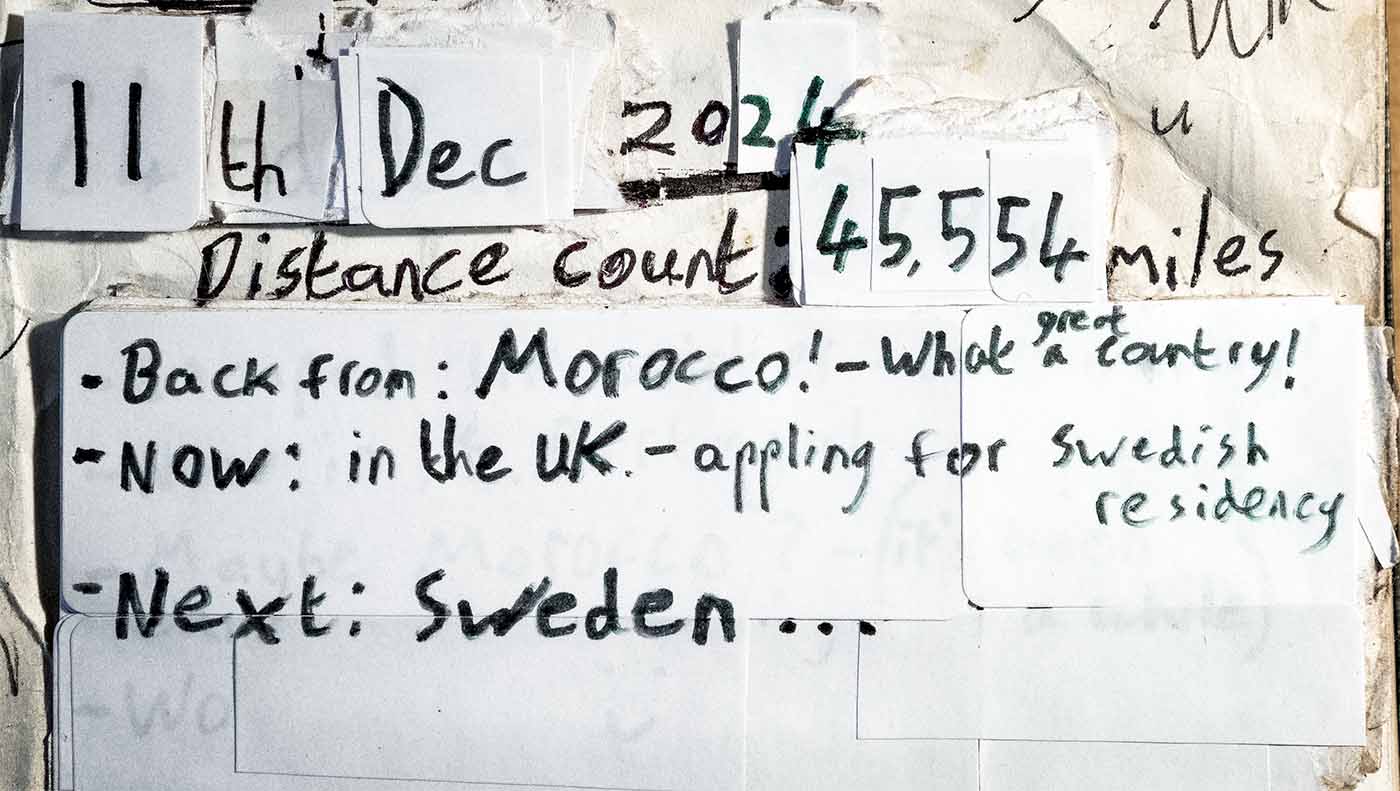 11th Dec 2024
Distance count: 45,554 miles
- Back from: Morocco! - What a great country!
- Now: in the UK. - appling for Swedish
residency
- Next: Sweden ...